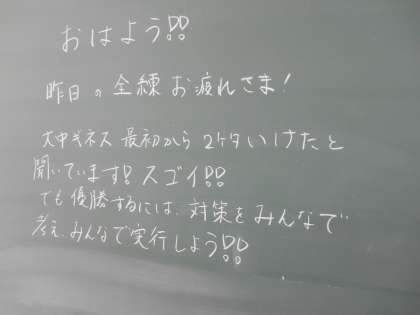 おはよう!!
昨日の全練お疲れさま!
大中ギネス最初から2ケタいけたと
聞いています!スゴイ!!
でも優勝するには、対策をみんなで
考え、みんなで実行しよう!!